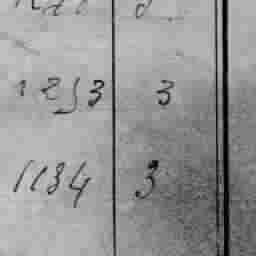 1253 3
1134 3